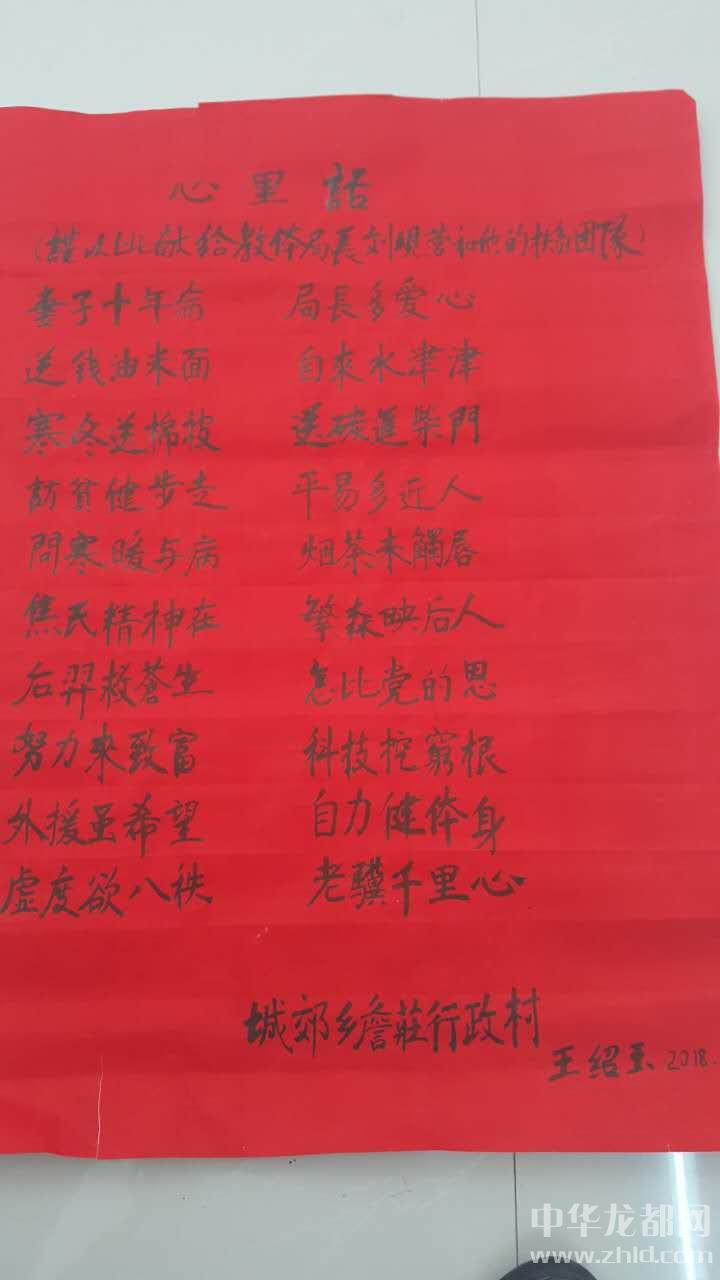 心里話
(謹以此献给教体局長刘明营和他的扶贫团隊)
妻子十年病 局長多爱心
送钱油米面 自來水津津
寒冬送棉被 送碳進柴門
訪貧健步走 平易多近人
問寒暖与病 烟茶未觸唇
焦民精神在 繁森映后人
后羿救蒼生 怎比党的恩
努力来致富 科技挖窮根
外援虽希望 自力健体身
虚度欲八秩 老驥千里心
城郊乡詹莊行政村
王绍玉 2018.
中华龙都网
www.zhld.com